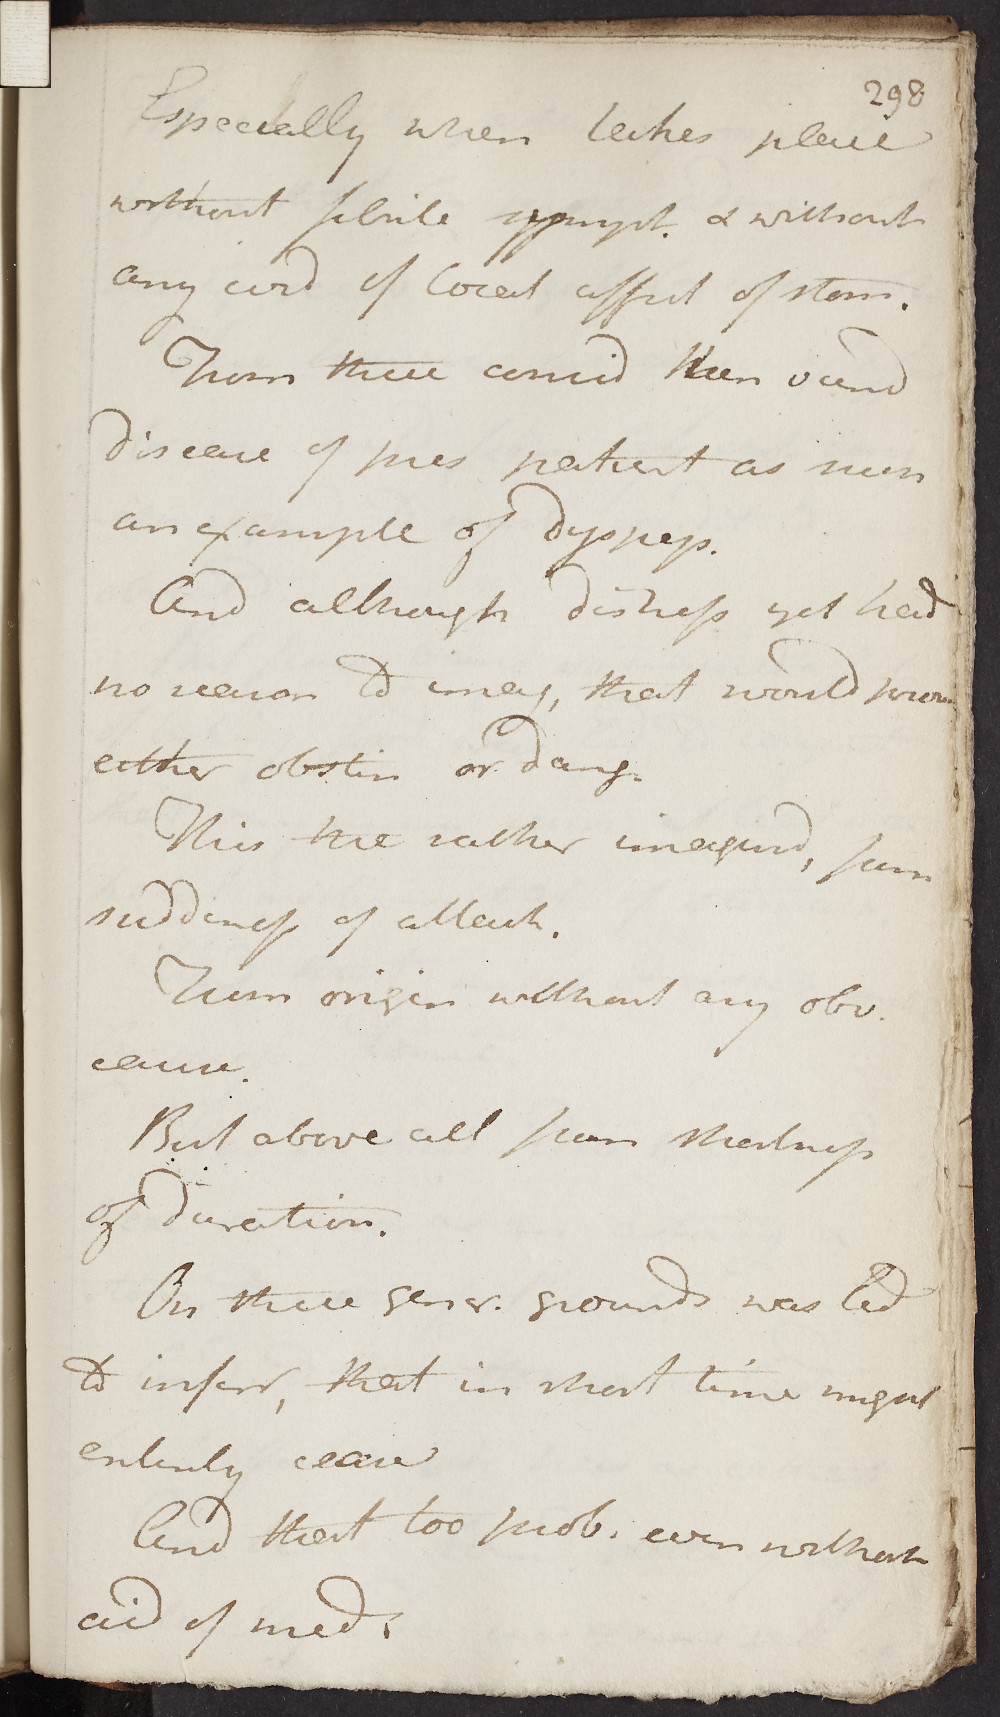 298
Especially when takes place
without febrile sympt. & without
any evid of local affect of stom.
From these consid then
disease of pres patient as mere
an example of dyspeps.
And although distress yet had
no reason to imag, that would prove
either obstin or dang.
This the rather imagind, from
suddeness of attack.
From origin without any obv.
cause.
But above all from shortness
of duration.
On these gener. grounds was led
to inferr, that in short time might
entirely cease
And that too prob. even without
aid of med.